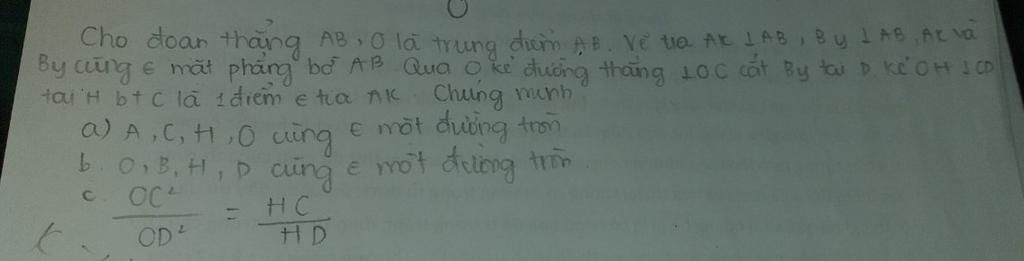 Cho đoan thẳng AB, O là trung điểm AB. Vẽ tia Ax ⊥ AB, By ⊥ AB, Ax và
By cùng ∈ mặt phẳng bờ AB. Qua O kẻ đường thẳng ⊥ OC cắt By tại D. Kẻ OH ⊥ CD
tại H bt C là 1 điểm ∈ tia Ax. Chứng minh
a) A, C, H, O cùng ∈ một đường tròn
b. O, B, H, D cùng ∈ một đường tròn.
c. OC²/OD² = HC/HD